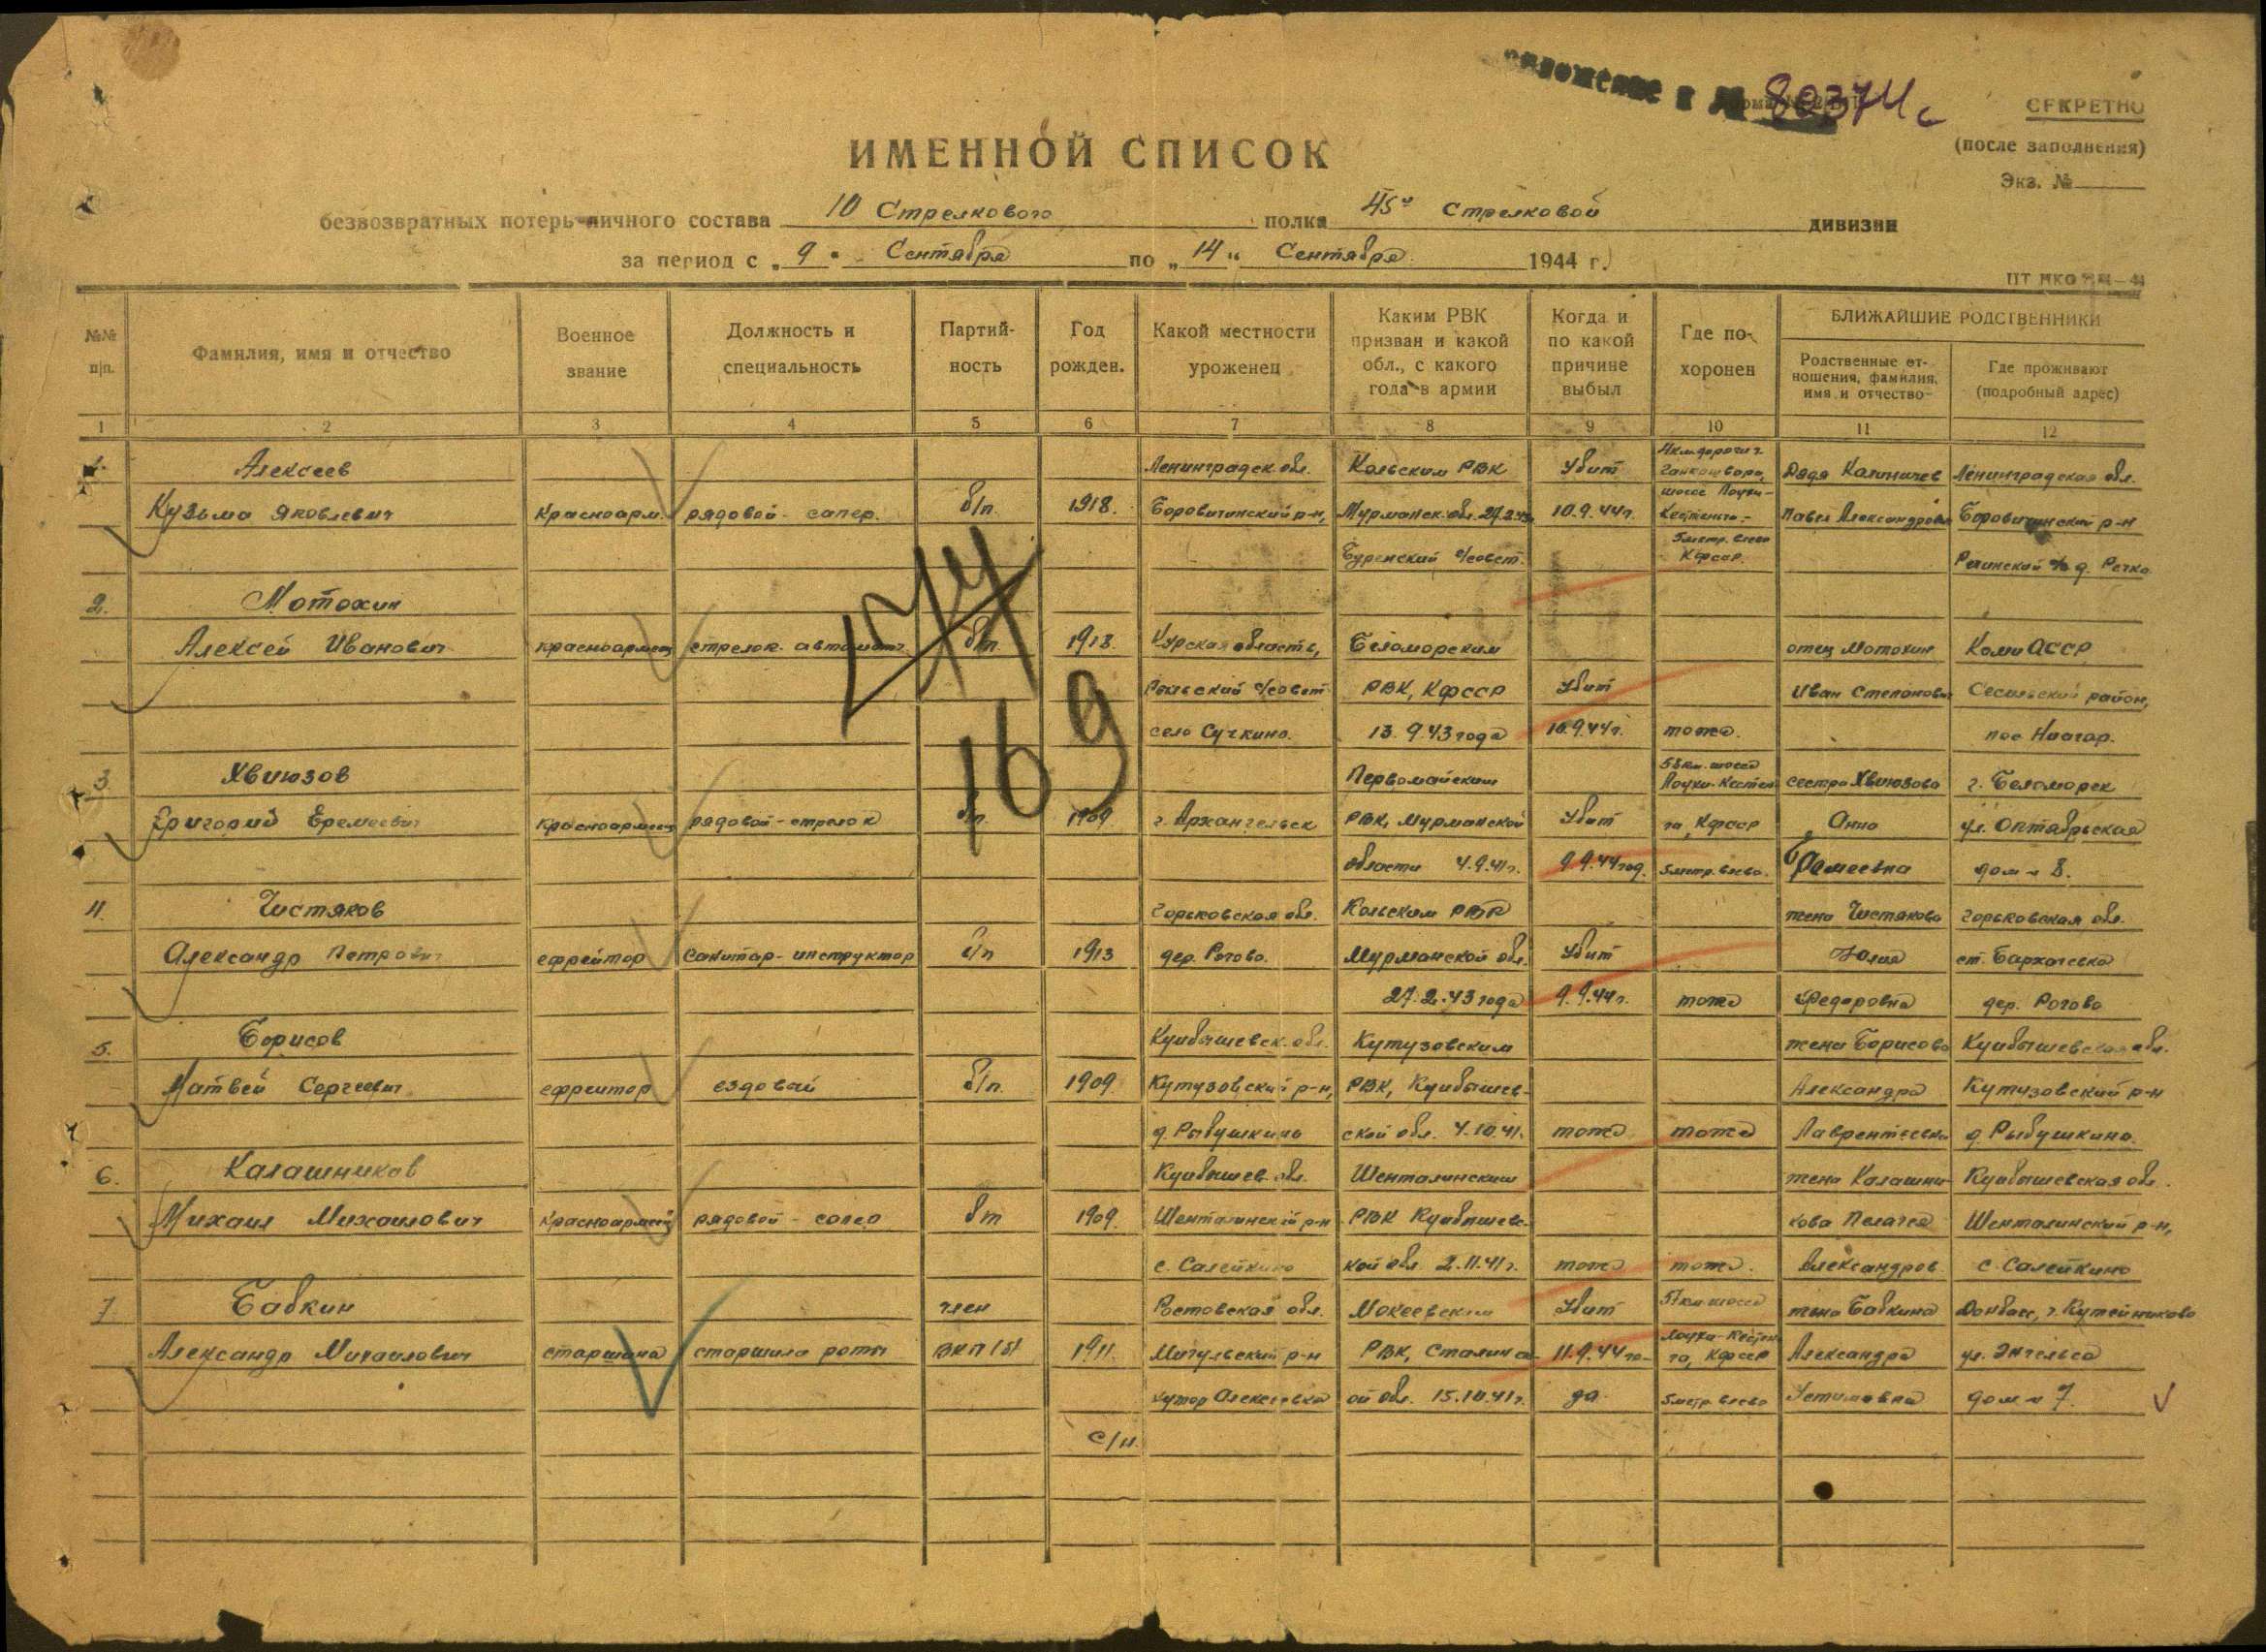 приложение к № 80374с
СЕКРЕТНО
(после заполнения)
Экз. №
ИМЕННОЙ СПИСОК
безвозвратных потерь личного состава 10 Стрелкового полка 45й Стрелковой дивизии
за период с „9" Сентября по „14" Сентября 1944 г.
№№ п|п.
Фамилия, имя и отчество
Военное звание
Должность и специальность
Партий-
ность
Год рожден.
Какой местности уроженец
Каким РВК
призван и какой
обл., с какого
года в армии
Когда и
по какой
причине
выбыл
Где по-
хоронен
БЛИЖАЙШИЕ РОДСТВЕННИКИ
Родственные от-
ношения, фамилия,
имя и отчество
Где проживают
(подробный адрес)
1 2 3 4 5 6 7 8 9 10 11 12
1. Алексеев Ленинградск. обл. Кольским РВК Убит дядя Калиничев Ленинградская обл.
Кузьма Яковлевич Красноарм. рядовой - сапер. б/п. 1918. Боровичинский р-н, Мурманск. обл. 10.9.44г. шоссе Лоухи- Кестеньга- Павел Александров Боровичинский р-н
с/совет. 5 метр. влево КФССР.
2. Мотохин
Алексей Иванович красноармеец стрелок. автомат. б/п. 1913. Курская область, Беломорским отец Мотохин Коми АССР
с/совет РВК, КФССР Убит Иван Степанович район,
село Сучкино. 13.9.43 года 10.9.44г. тоже. пос
3. Хвиюзов Первомайским 58 км. шоссе Лоухи-Кестен сестра Хвиюзова г. Беломорск
Григорий Еремеевич красноармеец рядовой - стрелок б/п. 1909 г. Архангельск РВК, Мурманской Убит га, КФССР Анна ул. Октябрьская
области 4.9.41г. 9.9.44 год. 5 метр. влево. Еремеевна дом № 8.
4. Чистяков Горьковская обл. Кольским РВК жена Чистякова Горьковская обл.
Александр Петрович ефрейтор санитар - инструктор б/п 1913 дер. Рогово. Мурманской обл. Убит Юлия ст.
27.2.43 года 9.9.44г. тоже Федоровна дер. Рогово
5. Борисов Куйбышевск. обл. Кутузовским жена Борисова Куйбышевская обл.
Матвей Сергеевич ефрейтор ездовой б/п. 1909 Кутузовский р-н, РВК, Куйбышев- Александра Кутузовский р-н
д. Рыбушкино ской обл. 4.10.41. тоже тоже Лаврентьевна д. Рыбушкино.
6. Калашников Куйбышев. обл. Шенталинским жена Калашни- Куйбышевская обл.
Михаил Михайлович красноармеец рядовой - бп 1909 Шенталинский р-н РВК Куйбышевс- кова Пелагея Шенталинский р-н,
с. Салейкино кой обл 2.11.41г. тоже тоже. Александров. с. Салейкино
7. Бабкин член Ростовская обл. Макеевским Убит 57 км шоссе жена Бабкина Донбасс, г. Кутейниково
Александр Михайлович старшина старшина роты ВКП(б) 1911. Мигульский р-н РВК, Сталинск 11.9.44 го- Лоухи-Кестень га, КФССР Александра ул. Энгельса
хутор Алексеевка ой обл. 15.10.41г. да 5 метр. влево Устимовна дом № 7.
с/н.
169